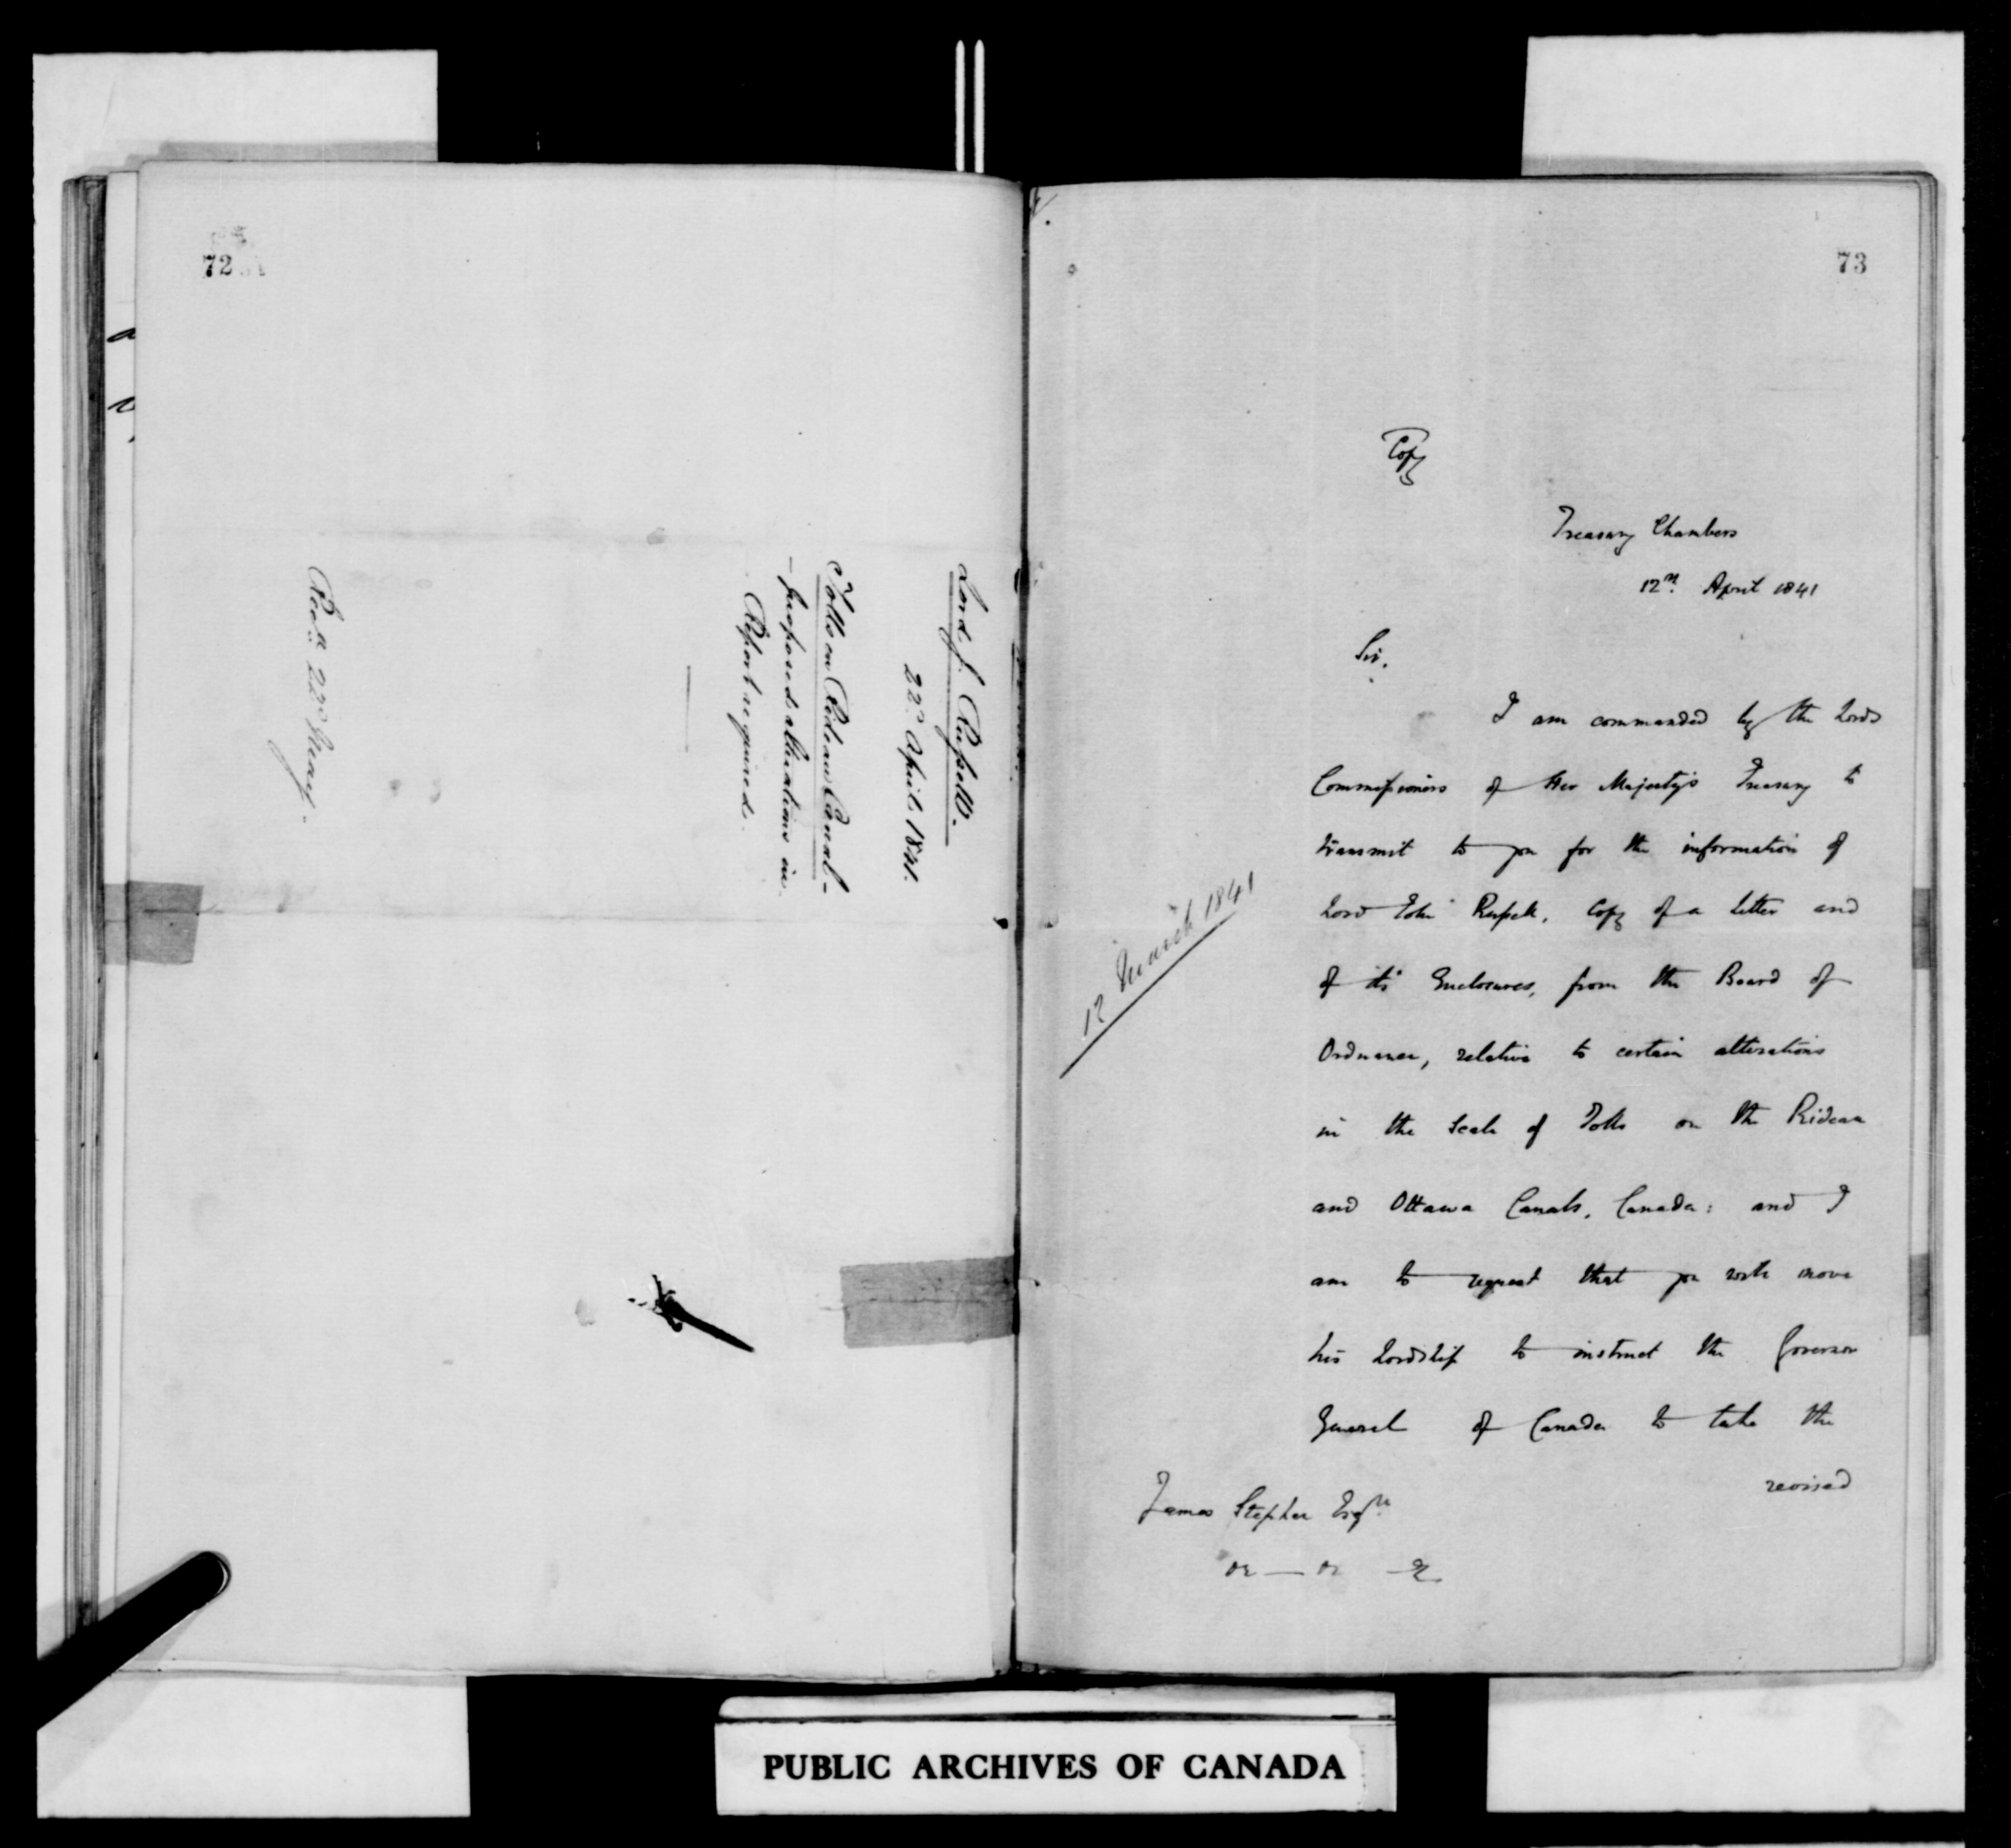 72
Lord J. Russell.
22d. April 1841.
Tolls on Rideau Canal -
- proposed alterations in
Report required.
Recd 22d May.
73
Copy
Treasury Chambers
12th April 1841
Sir.
I am commanded by the Lords
Commissioners of Her Majesty's Treasury to
transmit to you for the information of
Lord John Russell, Copy of a letter and
12 March 1841
of its Enclosures, from the Board of
Ordnance, relative to certain alterations
in the Scale of Tolls on the Rideau
and Ottawa Canals, Canada: and I
am to request that you will move
his Lordship to instruct the Governor
General of Canada to take the
revised
James Stephen Esqre
&c — &c &c
PUBLIC ARCHIVES OF CANADA